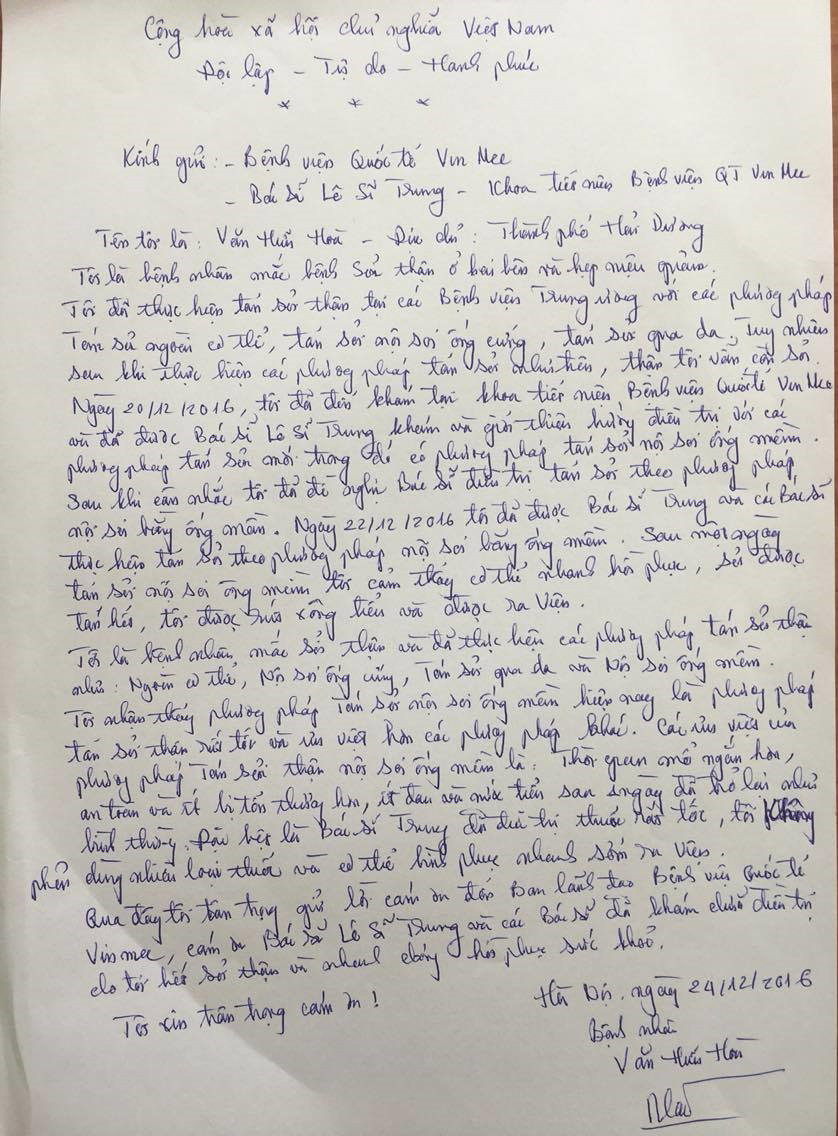 Cộng hoà xã hội chủ nghĩa Việt Nam
Độc lập - Tự do - Hạnh phúc
* * *
Kính gửi: - Bệnh viện Quốc tế Vin Mec
- Bác sĩ Lê Sĩ Trung - Khoa tiết niệu Bệnh viện QT Vin Mec
Tên tôi là: Văn Hoà - Địa chỉ: Thành phố Hải Dương
Tôi là bệnh nhân mắc bệnh Sỏi thận ở hai bên và hẹp niệu quản.
Tôi đã thực hiện tán sỏi thận tại các Bệnh viện Trung ương với các phương pháp
Tán sỏi ngoài cơ thể, tán sỏi nội soi ống cứng, tán sỏi qua da, Tuy nhiên
sau khi thực hiện các phương pháp tán sỏi như trên, thận tôi vẫn còn sỏi.
Ngày 20/12/2016, tôi đã đến khám tại khoa tiết niệu Bệnh viện Quốc tế Vin Mec
và đã được Bác sĩ Lê Sĩ Trung khám và giới thiệu hướng điều trị với các
phương pháp tán sỏi mới trong đó có phương pháp tán sỏi nội soi ống mềm.
Sau khi cân nhắc tôi đã đề nghị Bác sĩ điều trị tán sỏi theo phương pháp
nội soi bằng ống mềm. Ngày 22/12/2016 tôi đã được Bác sĩ Trung và các Bác sĩ
thực hiện tán sỏi theo phương pháp nội soi bằng ống mềm. Sau một ngày
tán sỏi nội soi ống mềm tôi cảm thấy cơ thể nhanh hồi phục, sỏi được
tán hết, tôi được rút xông tiểu và được ra Viện.
Tôi là bệnh nhân mắc sỏi thận và đã thực hiện các phương pháp tán sỏi thận
như: Ngoài cơ thể, Nội soi ống cứng, Tán sỏi qua da và Nội soi ống mềm.
Tôi nhận thấy phương pháp Tán sỏi nội soi ống mềm hiện nay là phương pháp
tán sỏi thận rất tốt và ưu việt hơn các phương pháp khác. Các ưu việt của
phương pháp Tán sỏi thận nội soi ống mềm là: Thời gian mổ ngắn hơn,
an toàn và ít bị tổn thương hơn, ít đau và nước tiểu sau 1 ngày đã trở lại như
bình thường. Đặc biệt là Bác sĩ Trung đã điều trị thuốc rất tốt, tôi không
phải dùng nhiều loại thuốc và cơ thể bình phục nhanh sớm ra Viện.
Qua đây tôi trân trọng gửi lời cám ơn đến Ban lãnh đạo Bệnh viện Quốc tế
Vinmec, cám ơn Bác sĩ Lê Sĩ Trung và các Bác sĩ đã khám chữa điều trị
cho tôi hết sỏi thận và nhanh chóng hồi phục sức khoẻ.
Tôi xin trân trọng cám ơn!
Hà Nội, ngày 24/12/2016
Bệnh nhân
Văn Hoà